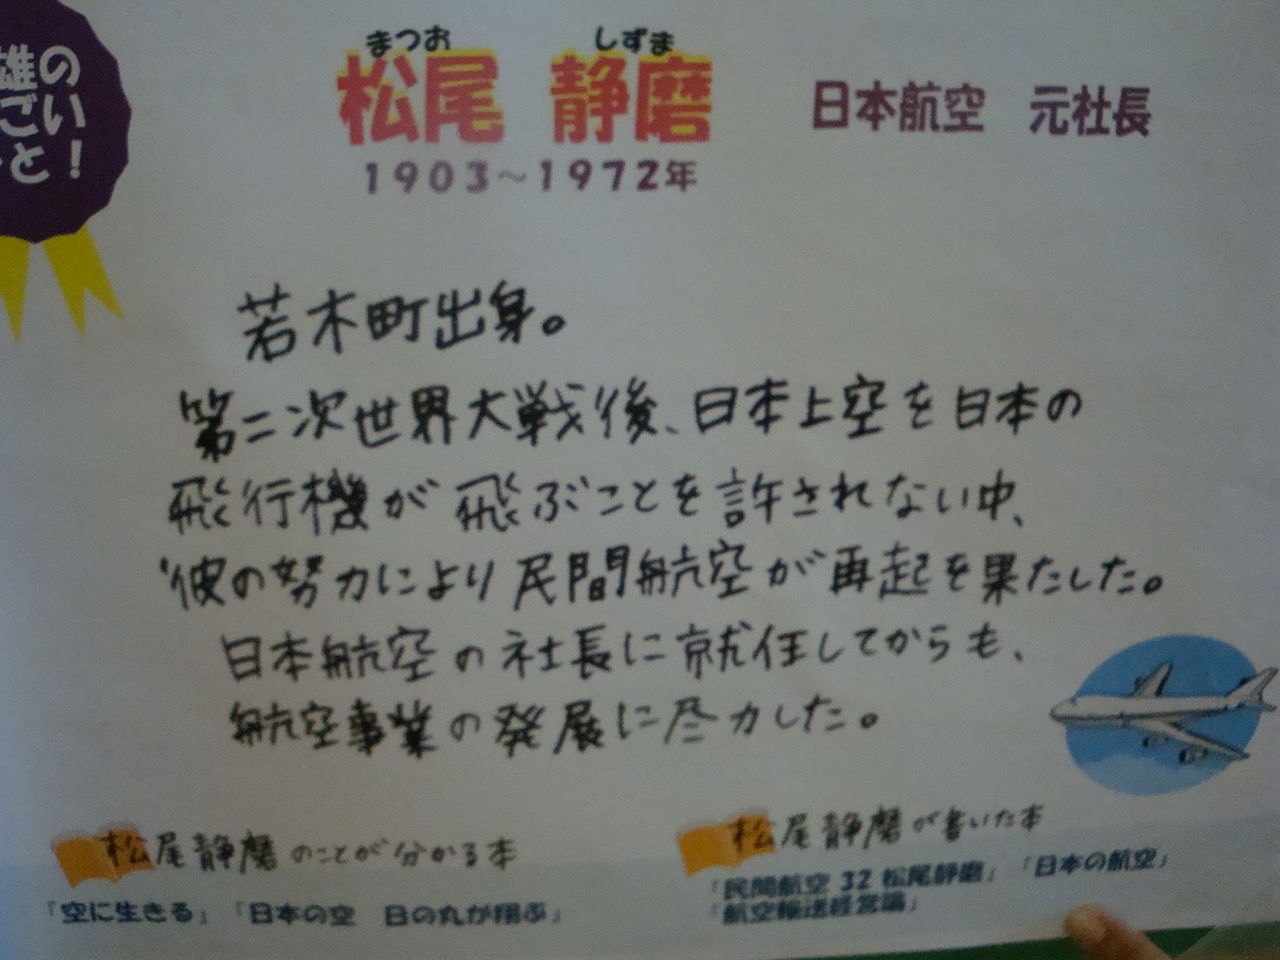 雄の
ごい
と！
まつお しずま
松尾 静磨 日本航空 元社長
1903～1972年
若木町出身。
第二次世界大戦後、日本上空を日本の
飛行機が飛ぶことを許されない中、
彼の努力により民間航空が再起を果たした。
日本航空の社長に就任してからも、
航空事業の発展に尽力した。
松尾静磨のことが分かる本
「空に生きる」「日本の空 日の丸が翔ぶ」
松尾静磨が書いた本
「民間航空 32 松尾静磨」「日本の航空」
「航空輸送経営論」